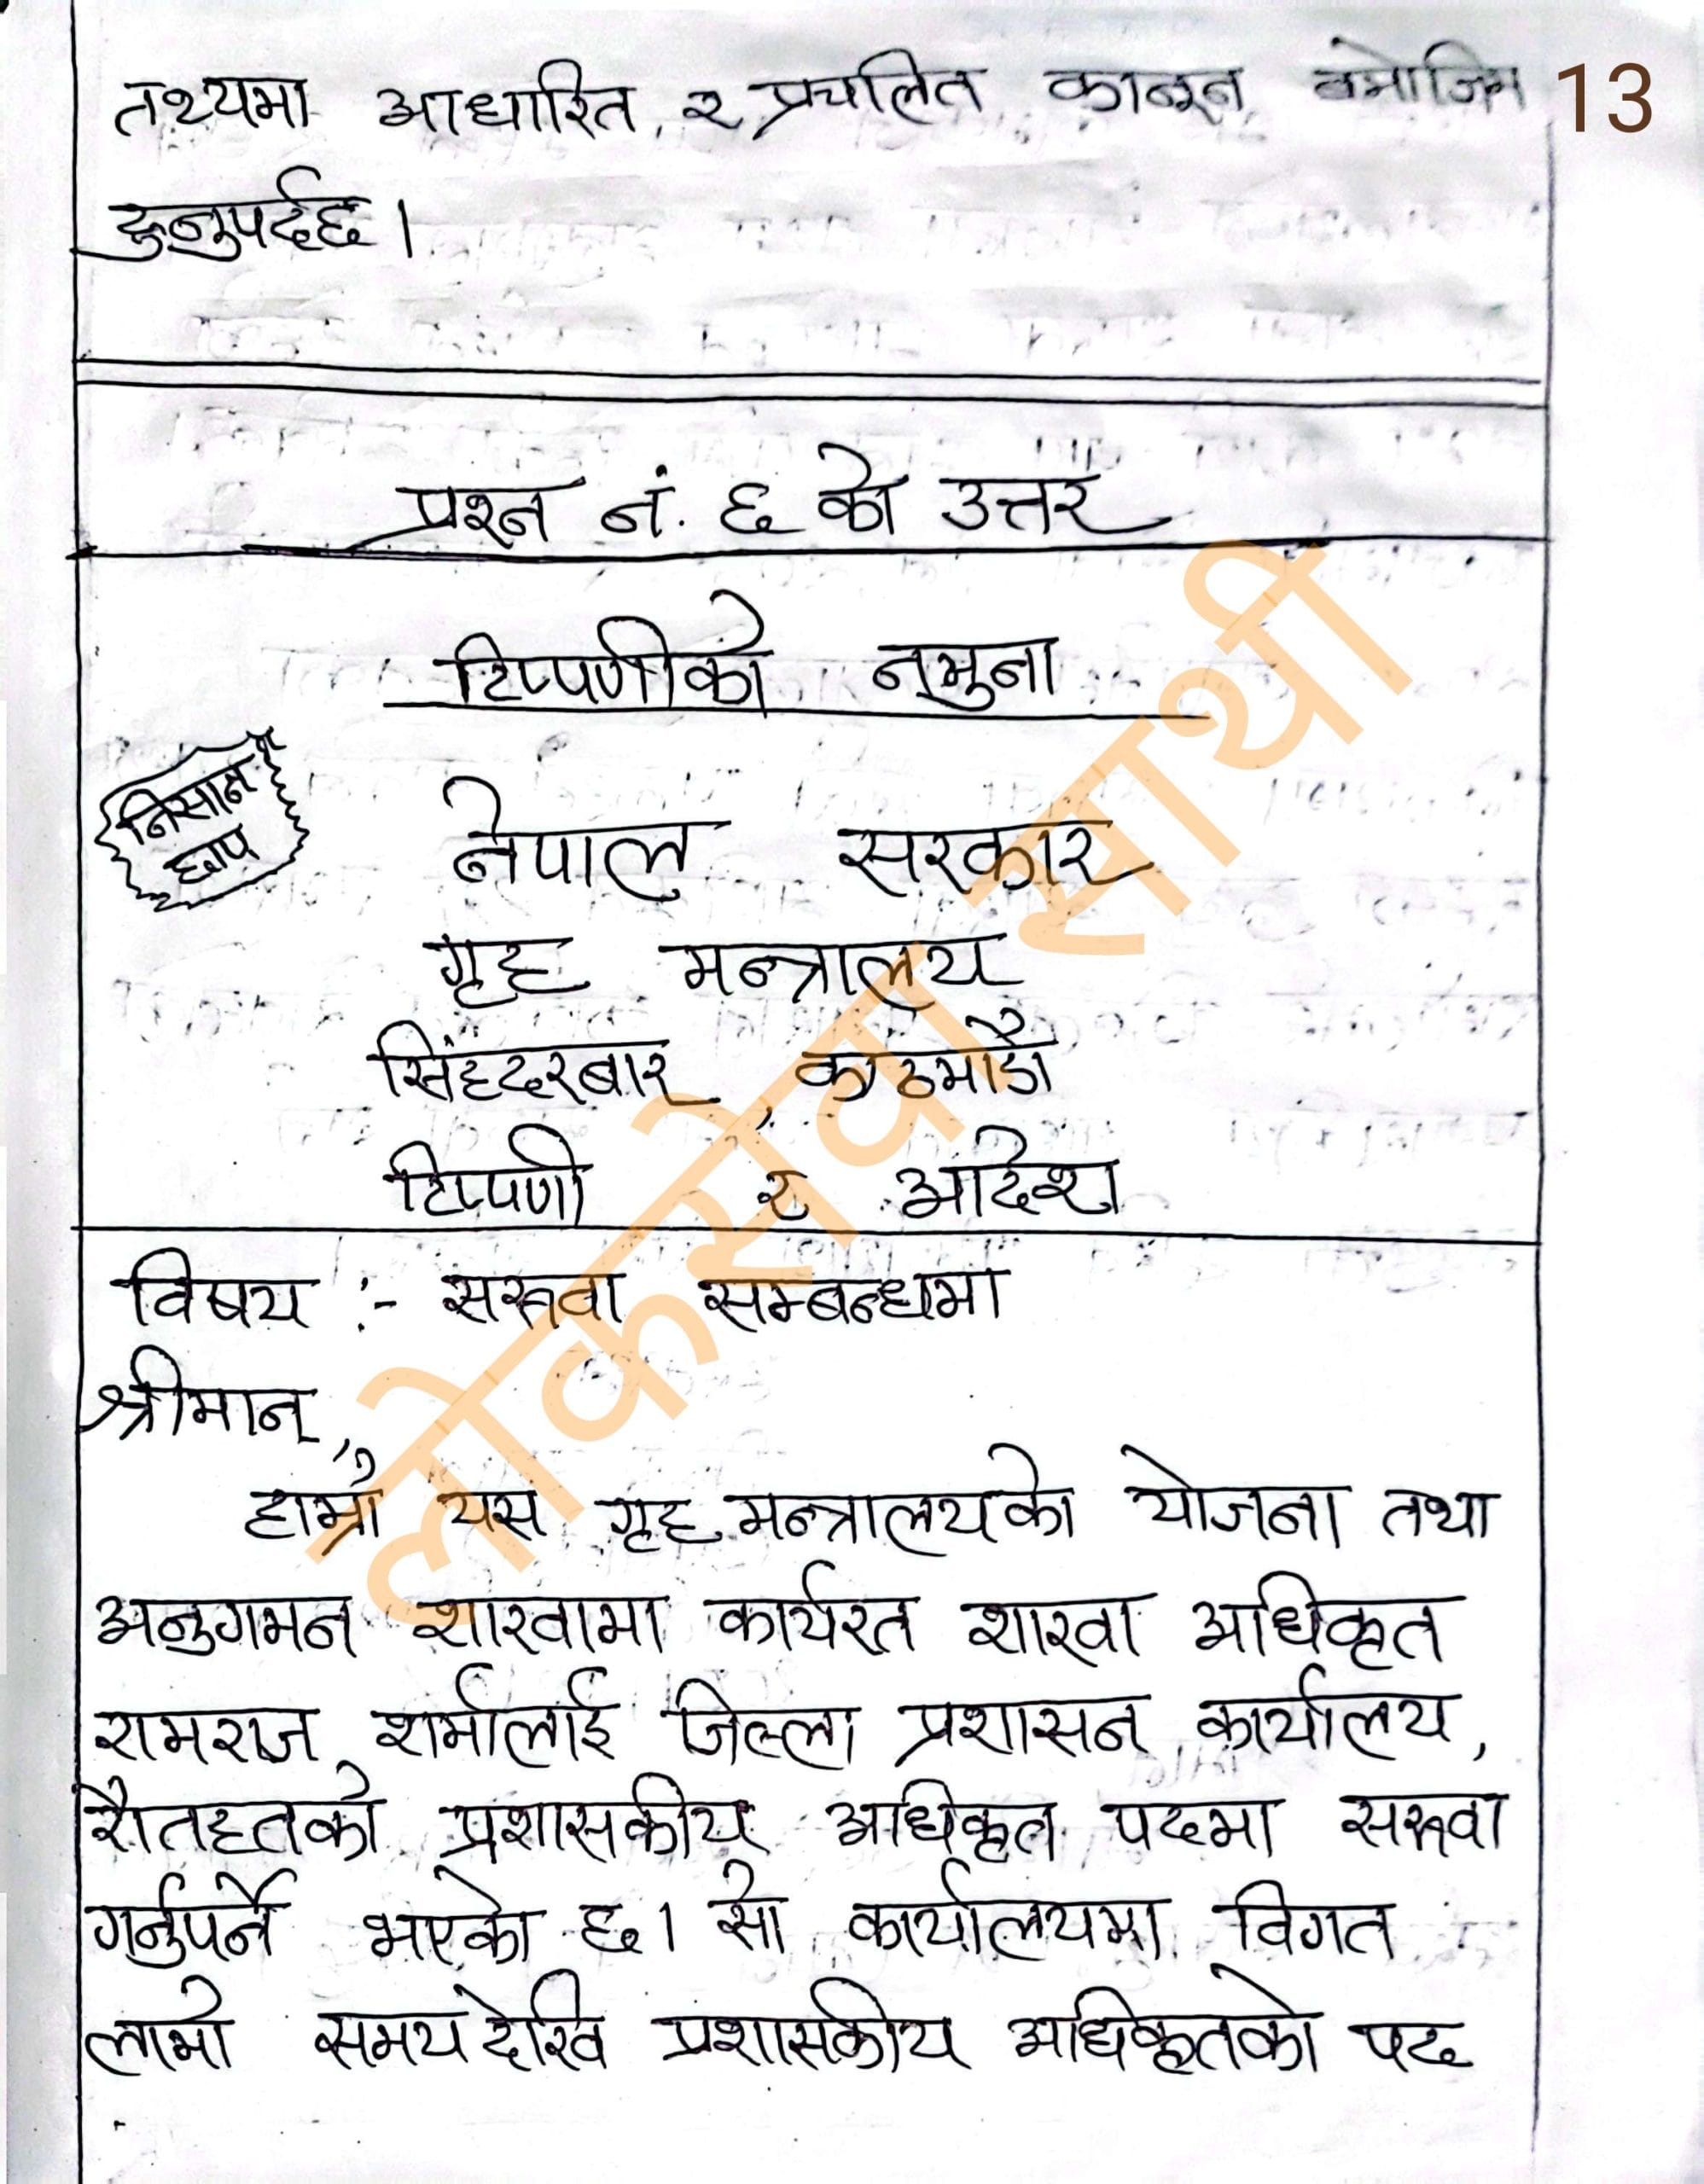 तथ्यमा आधारित र प्रचलित कानून बमोजिम
13
हुनुपर्दछ।
प्रश्न नं. ६ को उत्तर
टिप्पणीको नमुना
निसान
छाप
नेपाल सरकार
गृह मन्त्रालय
सिंहदरबार, काठमाडौं
टिप्पणी र आदेश
विषय :- सरुवा सम्बन्धमा
श्रीमान्,
हाम्रो यस गृह मन्त्रालयको योजना तथा
अनुगमन शाखामा कार्यरत शाखा अधिकृत
रामराज शर्मालाई जिल्ला प्रशासन कार्यालय,
रौतहतको प्रशासकीय अधिकृत पदमा सरुवा
गर्नुपर्ने भएको छ। सो कार्यालयमा विगत
लामो समय देखि प्रशासकीय अधिकृतको पद
लोकसेवा साथी